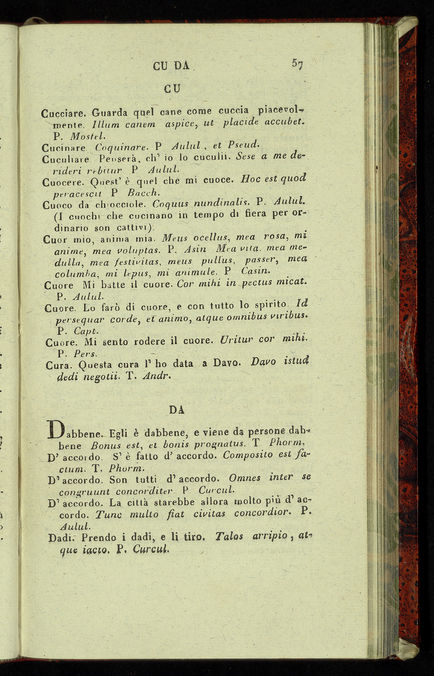 CU DA 57
CU
Cucciare. Guarda quel cane come cuccia piacevol-
mente. Illum canem aspice, ut placide accubet.
P. Mostel.
Cucinare. Coquinare. P Aulul., et Pseud.
Cuculiare Penserà, ch' io lo cuculii. Sese a me de-
rideri rebitur P Aulul.
Cuocere. Quest' è quel che mi cuoce. Hoc est quod
peracescit P Bacch.
Cuoco da chiocciole. Coquus nundinalis. P. Aulul.
(I cuochi che cucinano in tempo di fiera per or-
dinario son cattivi).
Cuor mio, anima mia. Meus ocellus, mea rosa, mi
anime, mea voluptas. P. Asin Mea vita. mea me-
dulla, mea festivitas, meus pullus, passer, mea
columba, mi lepus, mi animule. P Casin.
Cuore Mi batte il cuore. Cor mihi in pectus micat.
P. Aulul.
Cuore. Lo farò di cuore, e con tutto lo spirito. Id
persequar corde, et animo, atque omnibus viribus.
P. Capt.
Cuore. Mi sento rodere il cuore. Uritur cor mihi.
P. Pers.
Cura. Questa cura l' ho data a Davo. Davo istud
dedi negotii. T. Andr.
DA
Dabbene. Egli è dabbene, e viene da persone dab-
bene Bonus est, et bonis prognatus. T Phorm.
D' accordo. S' è fatto d' accordo. Composito est fa-
ctum. T. Phorm.
D' accordo. Son tutti d' accordo. Omnes inter se
congruunt concorditer P Curcul.
D' accordo. La città starebbe allora molto più d' ac-
cordo. Tunc multo fiat civitas concordior. P.
Aulul.
Dadi. Prendo i dadi, e li tiro. Talos arripio, at-
que iacto. P. Curcul.